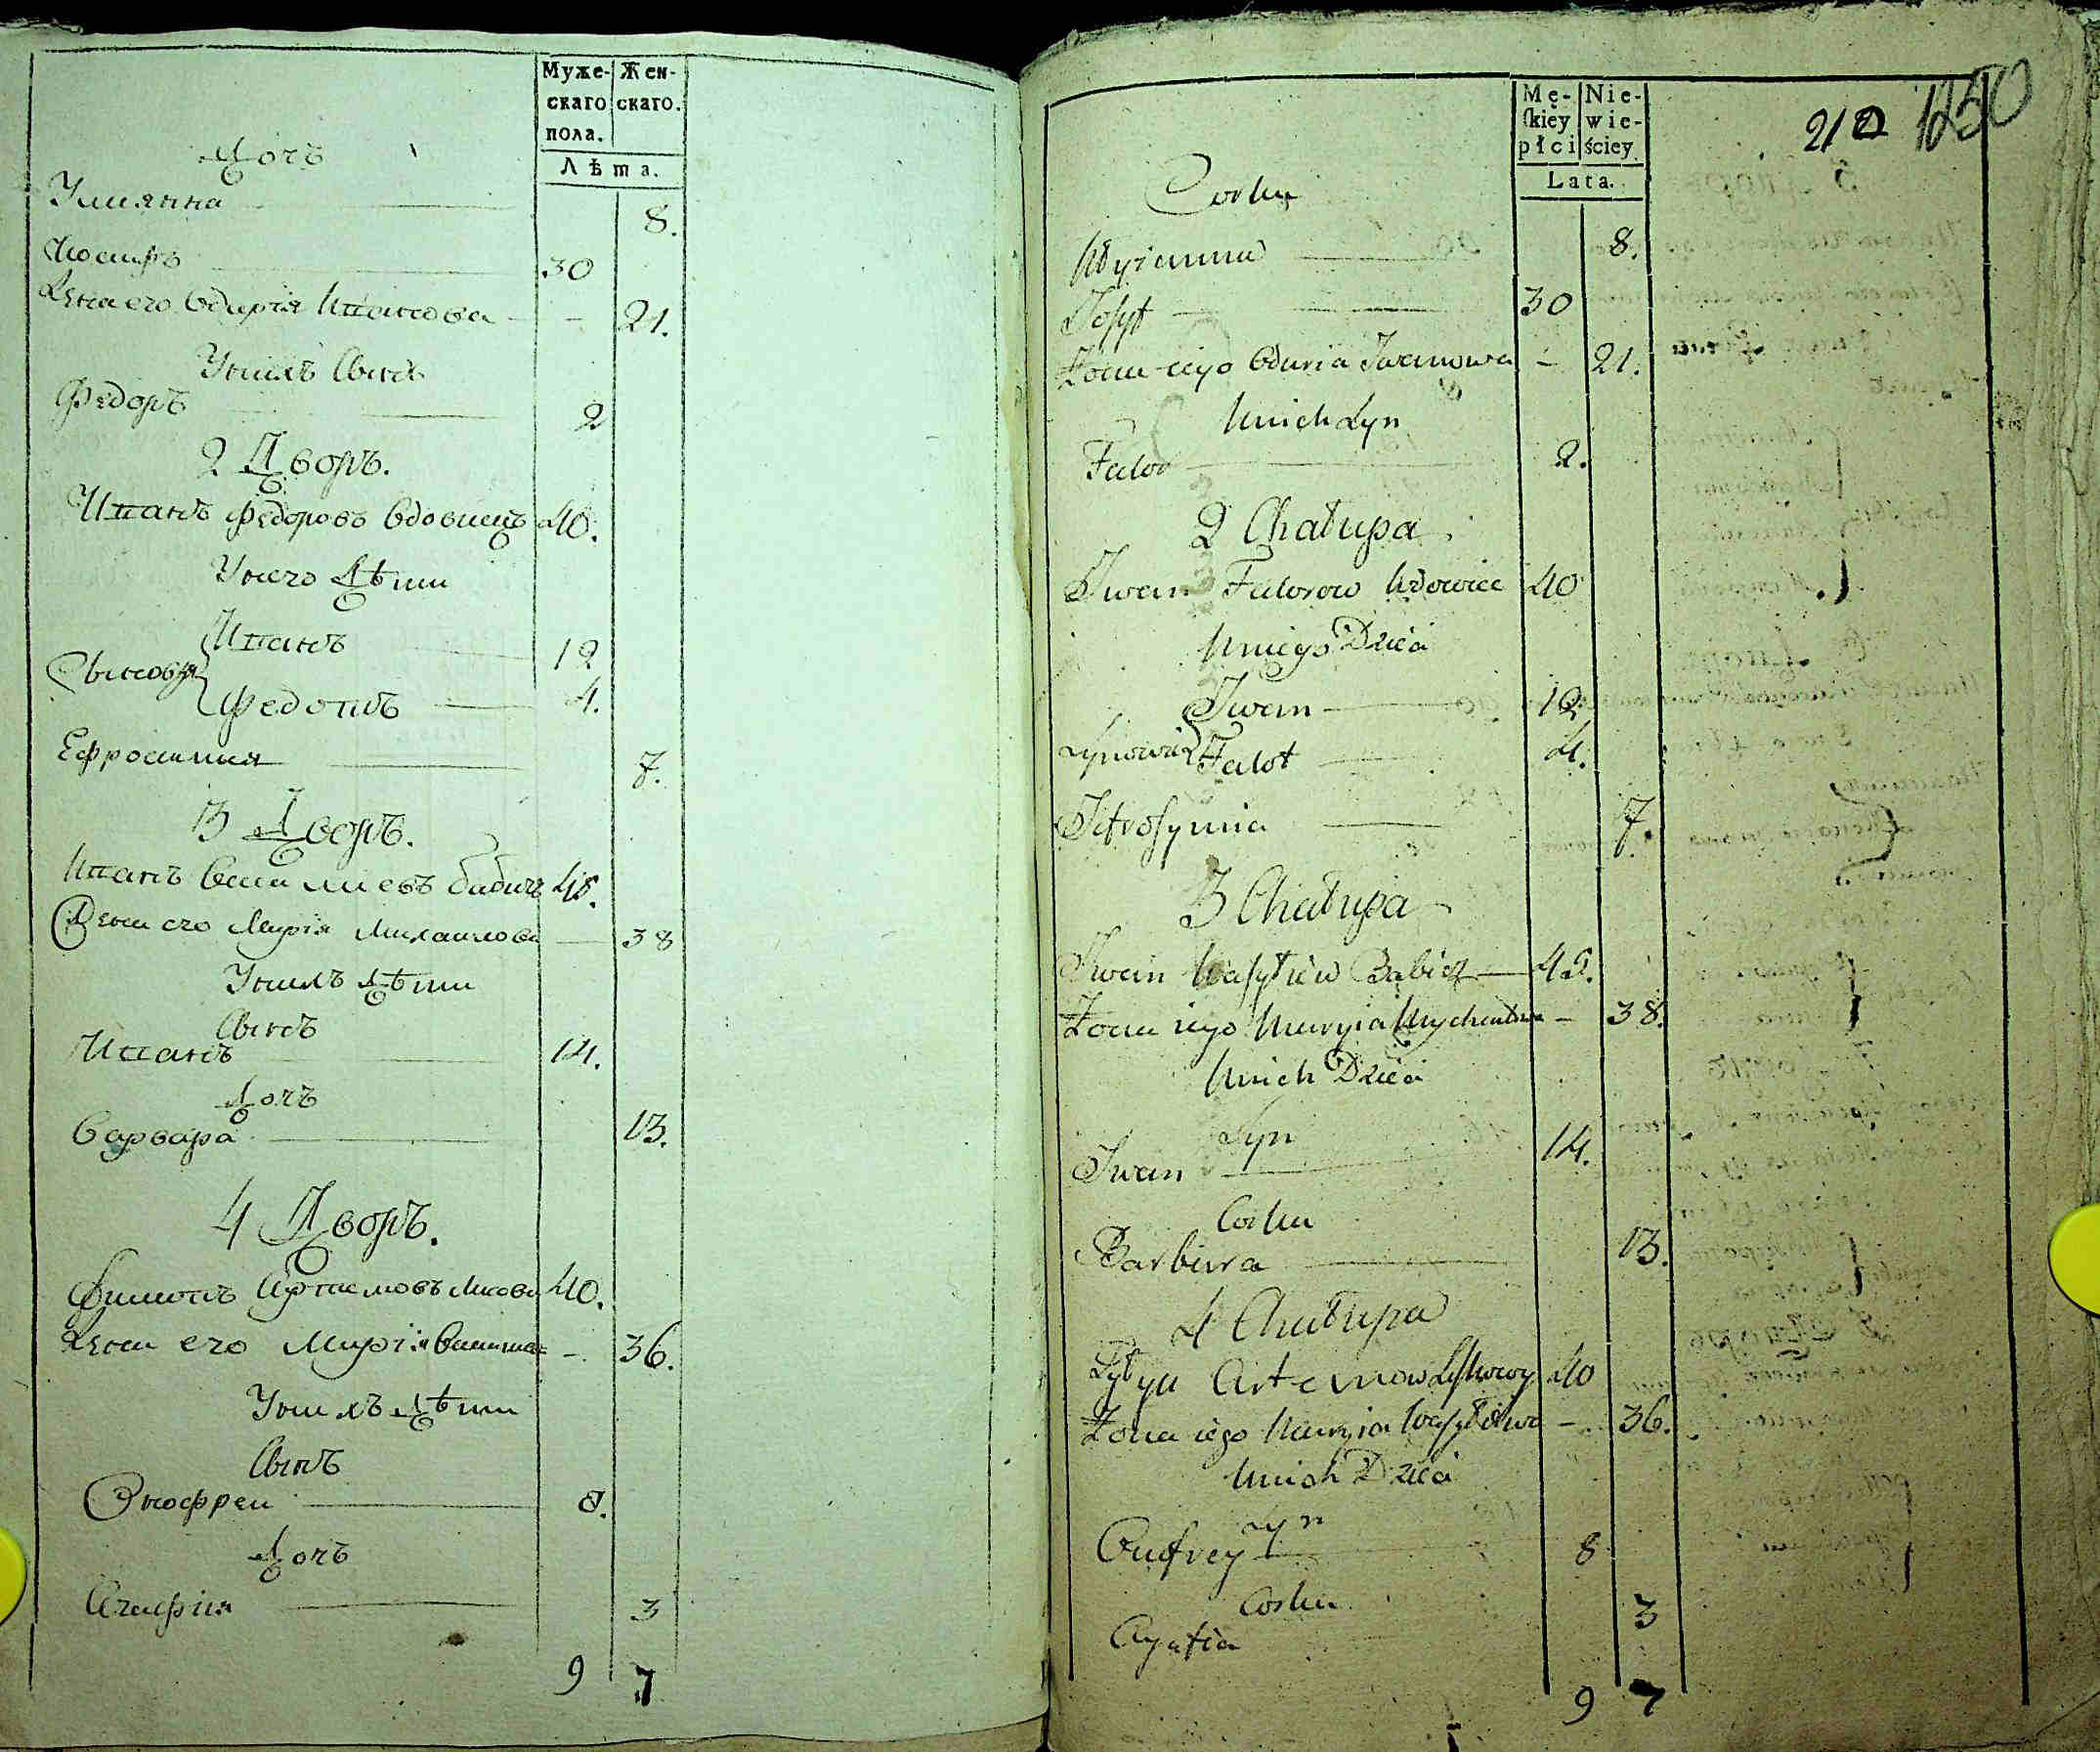 Муже-
скаго
пола.
Жен-
скаго.
Лѣта.
Дочь
Улиянна 8.
Иосифъ 30
Жена его Одария Иванова - 21.
У нихъ Сынъ
Федоръ 2
2 Дворъ.
Иванъ Федоровъ Вдовецъ 40.
У него Дѣти
Сыновья { Иванъ 12
Федотъ 4.
Ефросиния 7.
3 Дворъ.
Иванъ Василиевъ Бабичъ 45.
Жена его Марія Михаилова — 38
У нихъ Дѣти
Сынъ
Иванъ 14.
Дочь
Варвара 13.
4 Дворъ.
Артемовъ 40.
Жена его Марія - 36.
У нихъ Дѣти
Сынъ
Онофреи 8.
Дочь
Агафия 3
9 7
Mę-
ſkiey
płci
Nie-
wie-
ściey
Lata.
212 1250
Corka
8.
Josyf 30
Żona iego Odaria Iwanowa - 21.
U nich Syn
Fedor 2.
2 Chałupa
Iwan Fedorow Wdowiec 40
U niego Dzieci
Synowie { Iwan 12
Fedot 4.
Jefrosynia 7.
3 Chałupa
Iwan Wasylew Babicz 45.
Żona iego Maryia Mychaiłowa - 38.
U nich Dzieci
Syn
Iwan 14.
Corka
Barbara 13.
4 Chałupa
Artemow 40
Żona iego Maryia Wasylowa - 36.
U nich Dzieci
Syn
Onofrey 8
Corka
Agafia 3
9 7